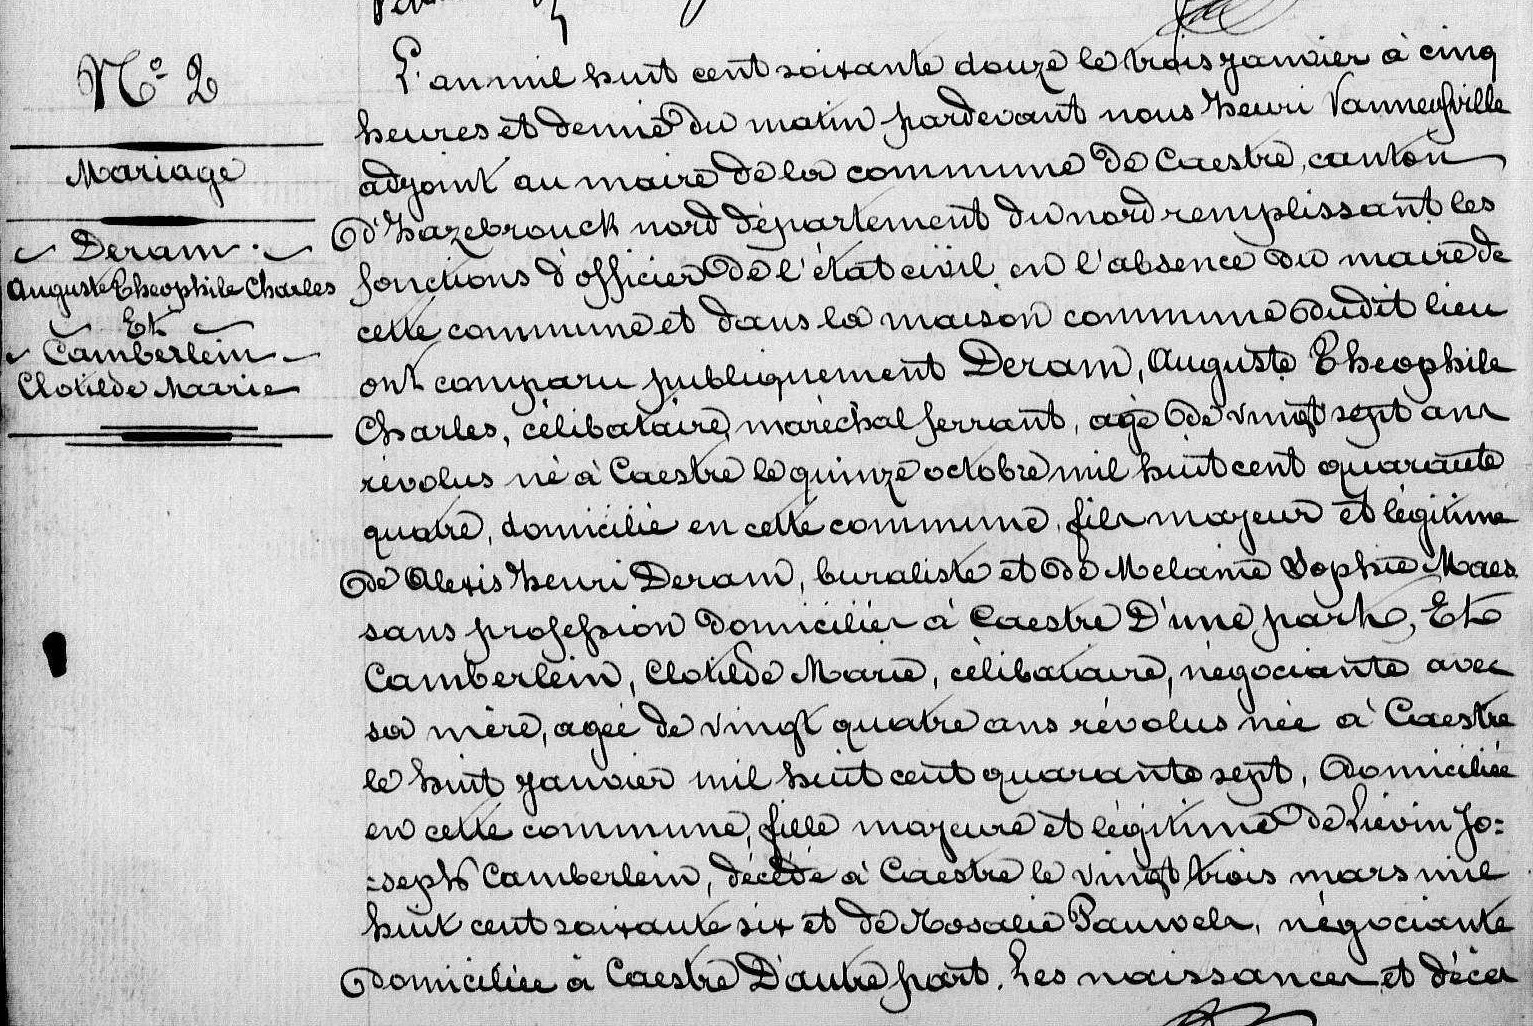 N° 2
Mariage
Deram
Auguste Théophile Charles
Et
Camberlein
Clotilde Marie
L'an mil huit cent soixante douze le trois janvier à cinq
heures et demie du matin pardevant nous Henri
adjoint au maire de la commune de Caestre, canton
d'hazebrouck nord département du nord remplissant les
fonctions d'officier de l'état civil en l'absence du maire de
cette commune et dans la maison commune dudit lieu
ont comparu publiquement Deram, Auguste Théophile
Charles, célibataire, maréchal ferrant, agé de vingt sept ans
révolus né à Caestre le quinze octobre mil huit cent quarante
quatre, domicilié en cette commune, fils majeur et légitime
de Alexis henri Deram, buraliste et de Melanie Sophie Maes
sans profession domiciliés à Caestre D'une part, Et
Camberlein, Clotilde Marie, célibataire, négociante avec
sa mère, agée de vingt quatre ans révolus née à Caestre
le huit janvier mil huit cent quarante sept, domiciliée
en cette commune, fille majeure et légitime de Liévin Jo=
=seph Camberlein, décédé à Caestre le vingt trois mars mil
huit cent soixante six et de Rosalie Pauwels, négociante
domiciliée à Caestre D'autre part. Les naissances et décès